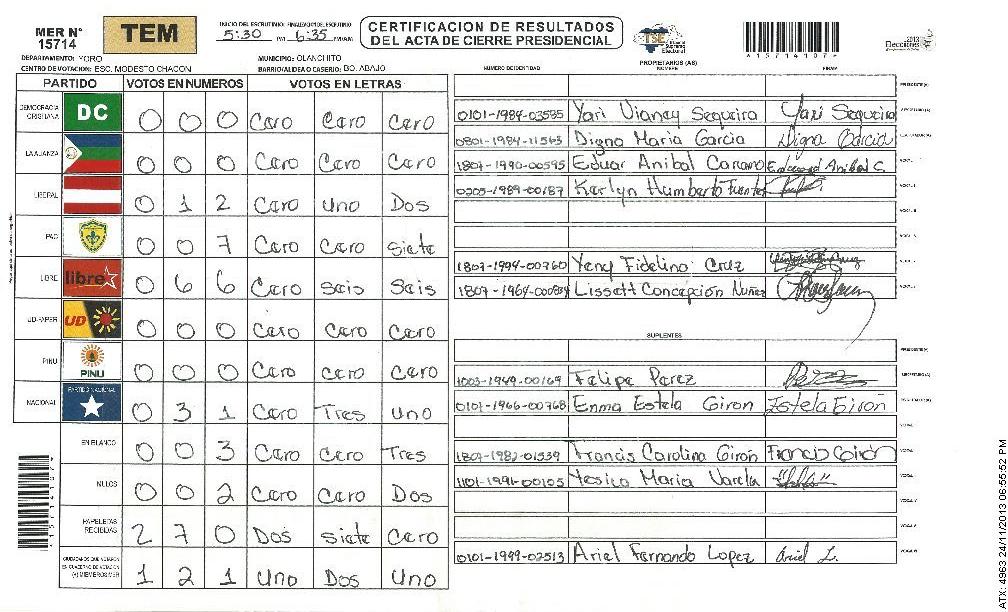 MER N° 15714
TEM
INICIO DEL ESCRUTINIO: 5:30 PM FINALIZACION DEL ESCRUTINIO 6:35 PM/AM
CERTIFICACION DE RESULTADOS
DEL ACTA DE CIERRE PRESIDENCIAL
TSE
Tribunal Supremo Electoral
*15714107*
2013
Elecciones
DEPARTAMENTO: YORO
MUNICIPIO: OLANCHITO
CENTRO DE VOTACION: ESC. MODESTO CHACON
BARRIO/ALDEA O CASERIO: BO. ABAJO
NUMERO DE IDENTIDAD
PROPIETARIOS (AS)
NOMBRE
FIRMA
PARTIDO VOTOS EN NUMEROS VOTOS EN LETRAS
DEMOCRACIA CRISTIANA DC 0 0 0 Caro Caro Caro
LA ALIANZA 0 0 0 Caro Caro Caro
LIBERAL 0 1 2 Caro Uno Dos
PAC 0 0 7 Caro Caro Siete
LIBRE libre 0 6 6 Caro Seis Seis
UD-FAPER UD 0 0 0 Caro Caro Caro
PINU PINU 0 0 0 Caro Caro Caro
NACIONAL PARTIDO NACIONAL 0 3 1 Caro Tres Uno
EN BLANCO 0 0 3 Caro Caro Tres
NULOS 0 0 2 Caro Caro Dos
PAPELETAS RECIBIDAS 2 7 0 Dos Siete Caro
CIUDADANOS QUE VOTARON EN CUADERNO DE VOTACION (+) MIEMBROS MER 1 2 1 Uno Dos Uno
PRESIDENTE(A)
0101-1984-03595 Yari Vianey Sequeira Yari Sequeira SECRETARIO (A)
0801-1984-11563 Digna Maria Garcia Digna Garcia
1807-1990-00595 Eduar Anibal Anibal C.
0205-1989-00187 Karlyn Humberto Fuentes
1807-1994-00760 Yeny Fidelino Cruz
1807-1964-00084 Lissett Concepción Nuñez
SUPLENTES
PRESIDENTE(A)
1003-1949-00169 Felipe Perez SECRETARIO(A)
0101-1966-00768 Enma Estela Giron Estela Giron
1807-1982-01539 Francis Carolina Giron Francis Giron
1101-1991-00105 Yesica Maria Varela
0101-1999-02513 Ariel Fernando Lopez Ariel L.
*15714107*
ATX: 4963 24/11/2013 06:55:52 PM